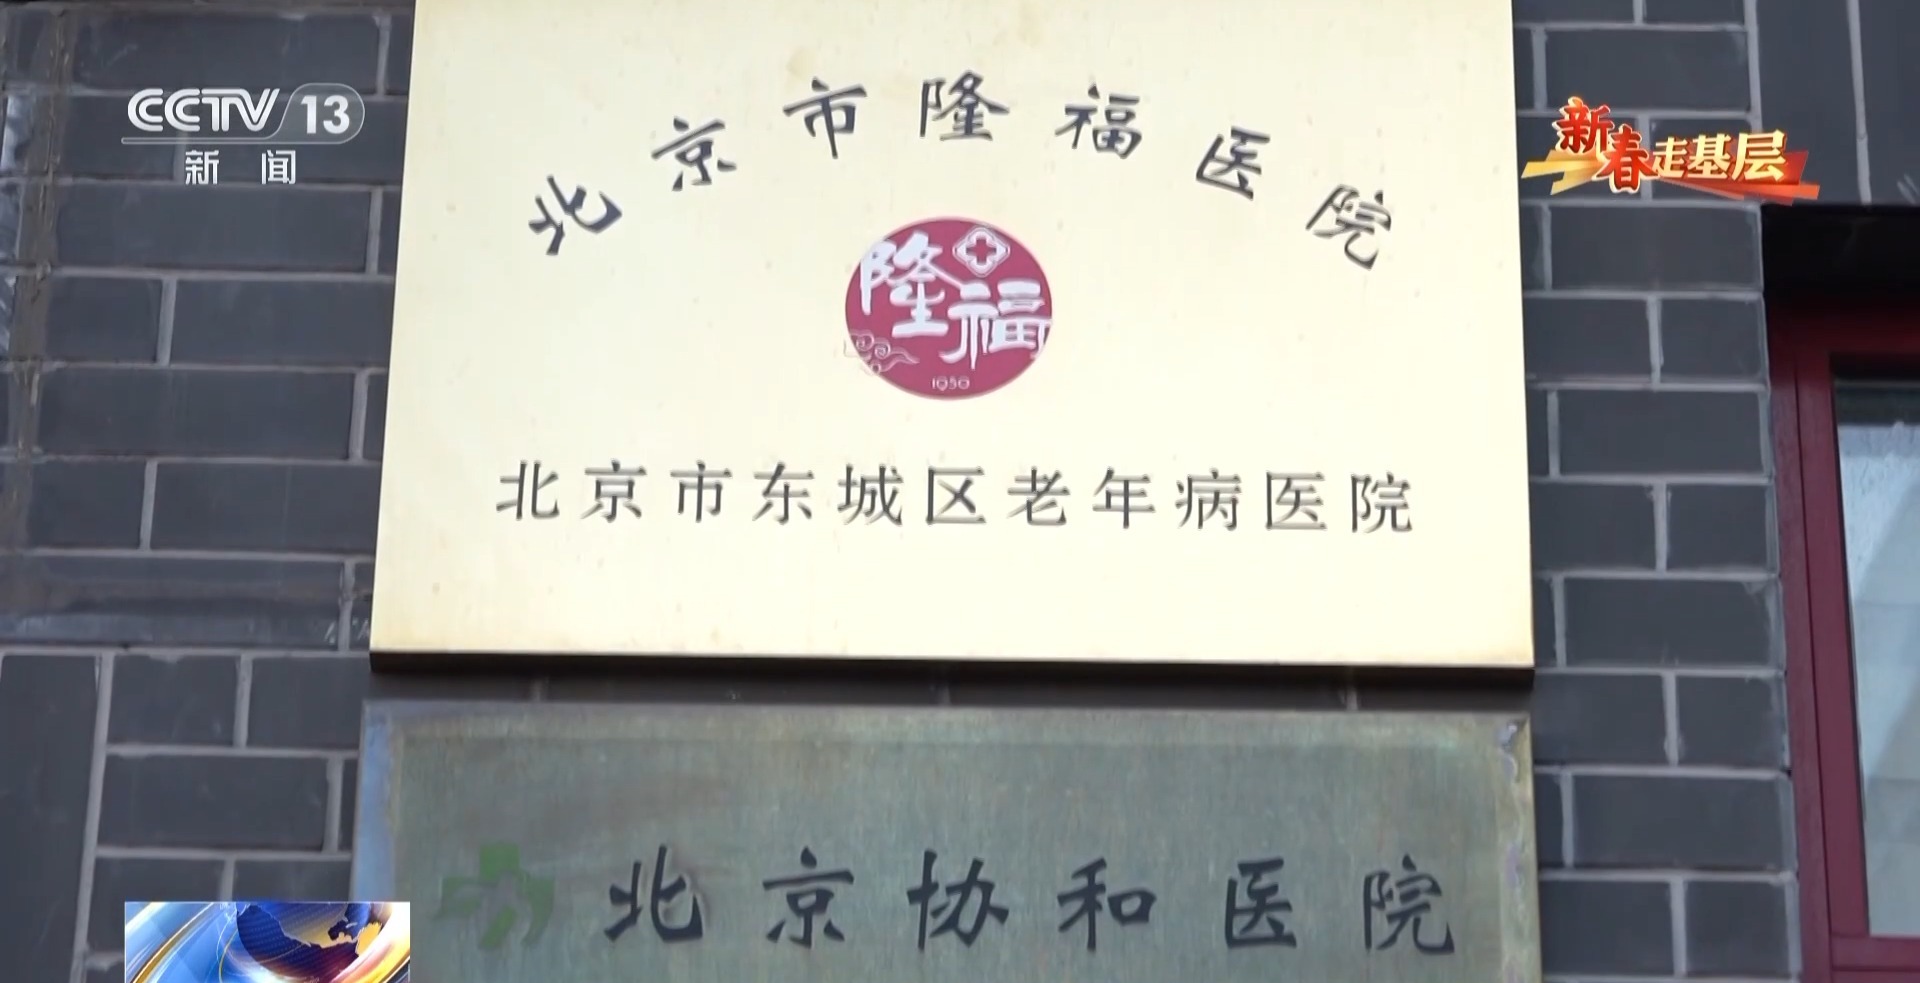 CCTV 13
新闻
新春走基层
北京市隆福医院
隆福
1950
北京市东城区老年病医院
北京协和医院